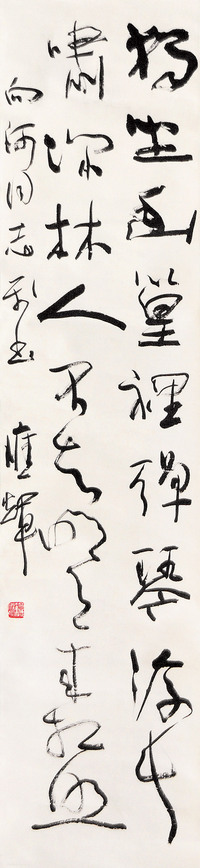 獨坐幽篁裡彈琴復长
嘯深林人不知明月来相照
向河同志
應輝